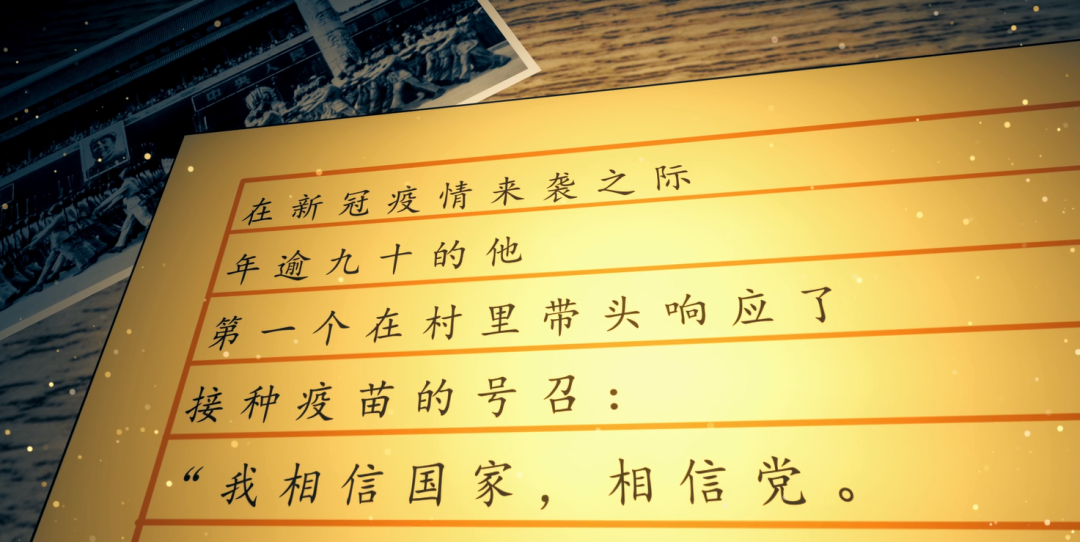 在新冠疫情来袭之际
年逾九十的他
第一个在村里带头响应了
接种疫苗的号召：
“我相信国家，相信党。